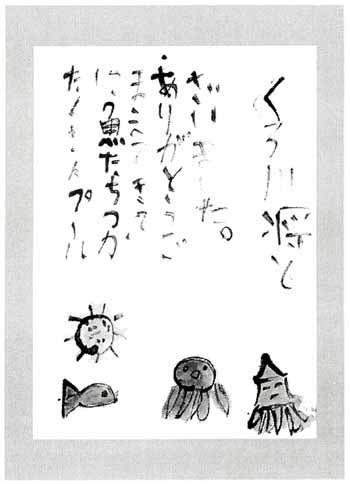 たくさんプール
に魚たちつか
まえてきて
ありがとうご
ざいました。
くろ川